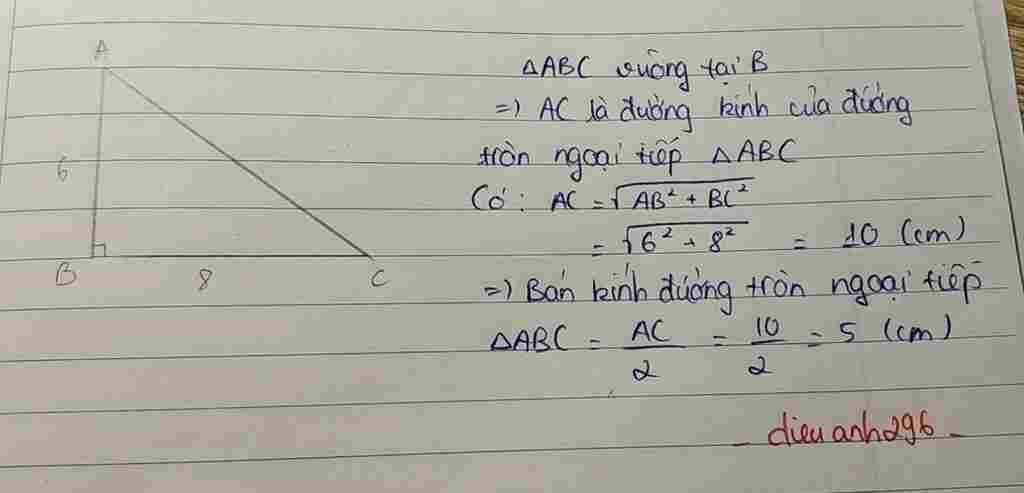 A
6
B
8
C
ΔABC vuông tại B
=) AC là đường kính của đường
tròn ngoại tiếp ΔABC
Có: AC = √(AB² + BC²)
= √(6² + 8²) = 10 (cm)
=) Bán kính đường tròn ngoại tiếp
ΔABC = AC/2 = 10/2 = 5 (cm)
- dieuanh296 -